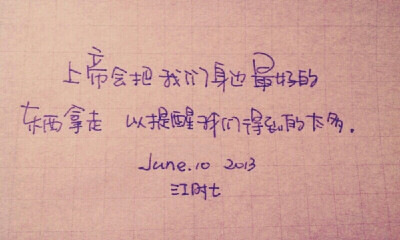 上帝会把我们身边最好的
东西拿走 以提醒我们得到的太多.
June.10 2013